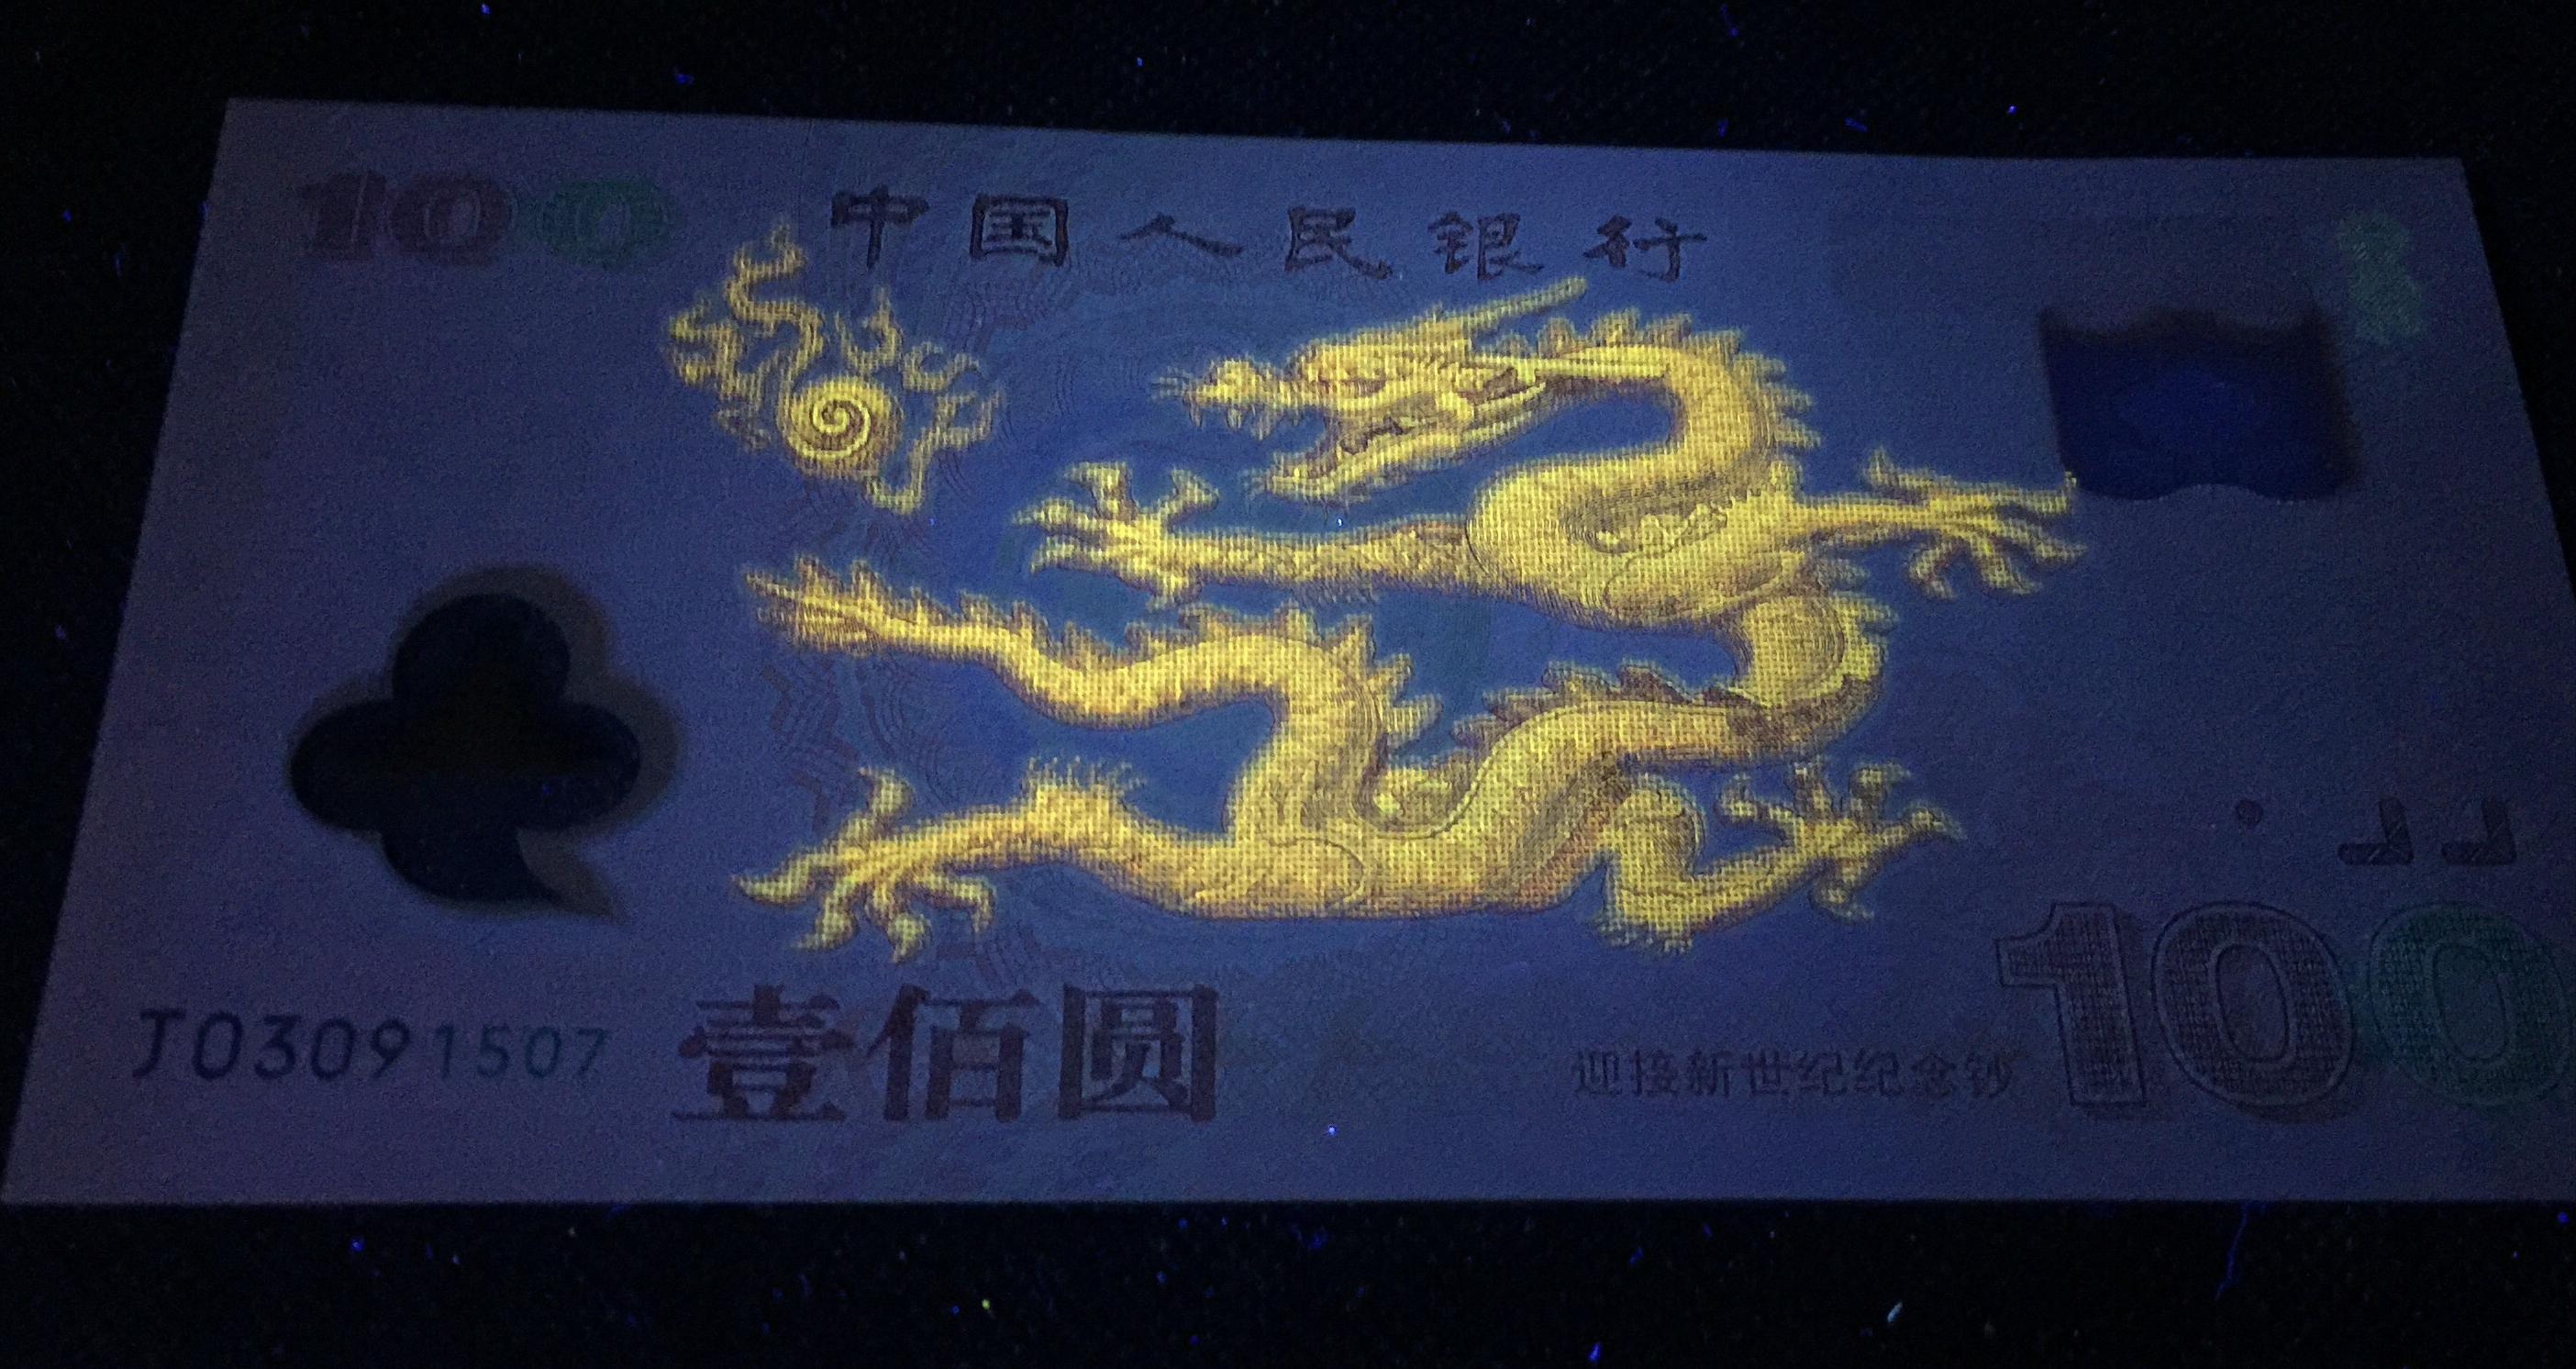 100
中国人民银行
J03091507
壹佰圆
迎接新世纪纪念钞
100